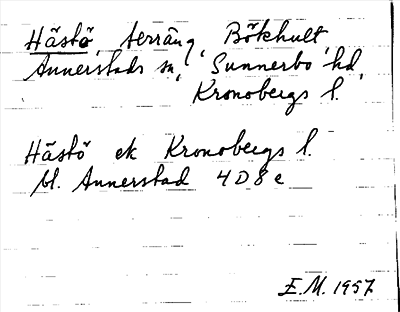 Hästö, terräng, Bökhult,
Annerstads sn, Sunnerbo hd,
Kronobergs l.
Hästö ek Kronobergs l.
bl. Annerstad 4D8e
E.M. 1957